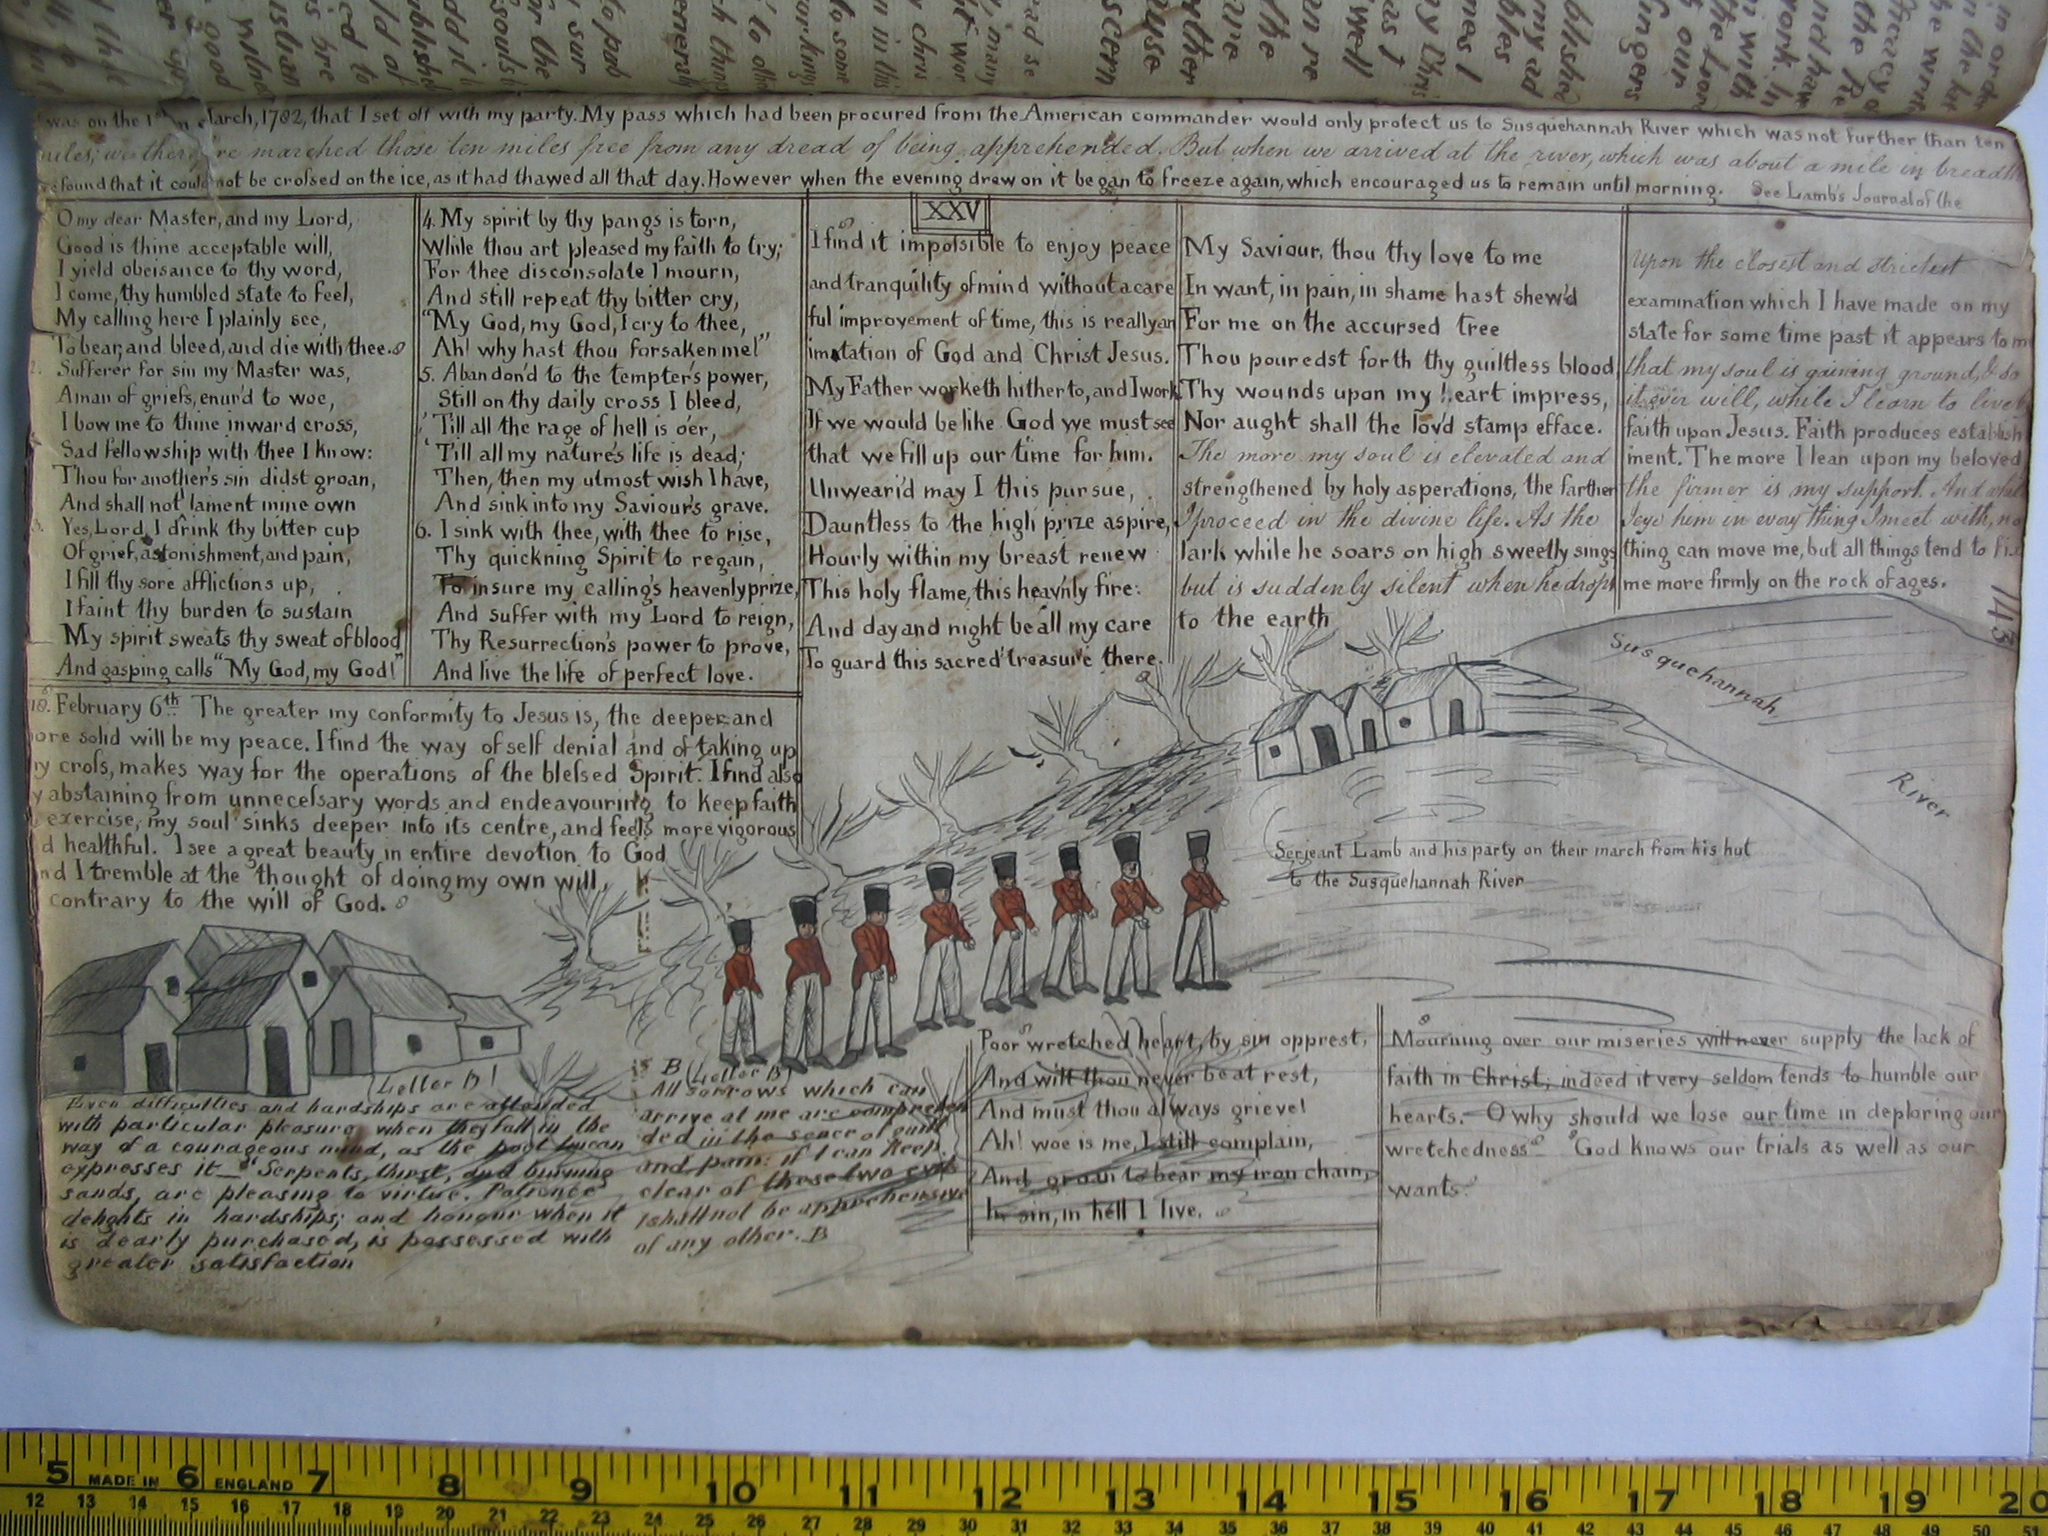 was on the 1st March, 1782, that I set off with my party. My pass which had been procured from the American commander would only protect us to Susquehannah River which was not further than ten
miles; we therefore marched those ten miles free from any dread of being apprehended. But when we arrived at the river, which was about a mile in breadth
found that it could not be crossed on the ice, as it had thawed all that day. However when the evening drew on it began to freeze again, which encouraged us to remain until morning. See Lamb's Journal of the
XXV
O my dear Master, and my Lord,
Good is thine acceptable will,
I yield obeisance to thy word,
I come, thy humbled state to feel,
My calling here I plainly see,
To bear, and bleed, and die with thee.
2. Sufferer for sin my Master was,
A man of griefs, enur'd to woe,
I bow me to thine inward cross,
Sad fellowship with thee I know:
Thou for another's sin didst groan,
And shall not I lament mine own
3. Yes, Lord, I drink thy bitter cup
Of grief, astonishment, and pain,
I fill thy sore afflictions up,
I faint thy burden to sustain
My spirit sweats thy sweat of blood
And gasping calls "My God, my God!"
4. My spirit by thy pangs is torn,
While thou art pleased my faith to try;
For thee disconsolate I mourn,
And still repeat thy bitter cry,
"My God, my God, I cry to thee,
Ah! why hast thou forsaken me!"
5. Abandon'd to the tempter's power,
Still on thy daily cross I bleed,
'Till all the rage of hell is o'er,
'Till all my nature's life is dead;
Then, then my utmost wish I have,
And sink into my Saviour's grave.
6. I sink with thee, with thee to rise,
Thy quickning Spirit to regain,
To insure my calling's heavenly prize,
And suffer with my Lord to reign,
Thy Resurrection's power to prove,
And live the life of perfect love.
I find it impossible to enjoy peace
and tranquility of mind without a care
ful improvement of time, this is really an
imitation of God and Christ Jesus.
My Father worketh hitherto, and I work
If we would be like God we must see
that we fill up our time for him.
Unweari'd may I this pursue,
Dauntless to the high prize aspire,
Hourly within my breast renew
This holy flame, this heav'nly fire:
And day and night be all my care
To guard this sacred treasure there.
My Saviour, thou thy love to me
In want, in pain, in shame hast shew'd
For me on the accursed tree
Thou pouredst forth thy guiltless blood,
Thy wounds upon my heart impress,
Nor aught shall the lov'd stamp efface.
The more my soul is elevated and
strengthened by holy asperations, the farther
I proceed in the divine life. As the
lark while he soars on high sweetly sings
but is suddenly silent when he drops
to the earth
Upon the closest and strictest
examination which I have made on my
state for some time past it appears to me
that my soul is gaining ground, & so
it ever will, while I learn to live by
faith upon Jesus. Faith produces establish
ment. The more I lean upon my beloved
the firmer is my support. And while
I eye him in every thing I meet with, no
thing can move me, but all things tend to fix
me more firmly on the rock of ages.
143
10. February 6th The greater my conformity to Jesus is, the deeper and
more solid will be my peace. I find the way of self denial and of taking up
my cross, makes way for the operations of the blessed Spirit. I find also
by abstaining from unnecessary words and endeavouring to keep faith
exercise, my soul sinks deeper into its centre, and feels more vigorous
and healthful. I see a great beauty in entire devotion to God
and I tremble at the thought of doing my own will,
contrary to the will of God.
Susquehannah
River
Serjeant Lamb and his party on their march from his hut
to the Susquehannah River
(Letter B)
Even difficulties and hardships are attended
with particular pleasure when they fall in the
way of a courageous mind, as the poet Lucan
expresses it— "Serpents, thirst, and burning
sands, are pleasing to virtue. Patience
delights in hardships; and honour when it
is dearly purchased, is possessed with
greater satisfaction
B (Letter B)
All sorrows which can
arrive at me are comprehen
ded in the sence of guilt
and pain: if I can keep
clear of these two evils
I shall not be apprehensive
of any other. B
Poor wretched heart, by sin opprest,
And wilt thou never be at rest,
And must thou always grieve!
Ah! woe is me, I still complain,
And groan to bear my iron chain,
In sin, in hell I live.
Mourning over our miseries will never supply the lack of
faith in Christ; indeed it very seldom tends to humble our
hearts. O why should we lose our time in deploring our
wretchedness God knows our trials as well as our
wants.
5 MADE IN 6 ENGLAND 7 8 9 10 11 12 13 14 15 16 17 18 19 20
12 13 14 15 16 17 18 19 20 21 22 23 24 25 26 27 28 29 30 31 32 33 34 35 36 37 38 39 40 41 42 43 44 45 46 47 48 49 50 51